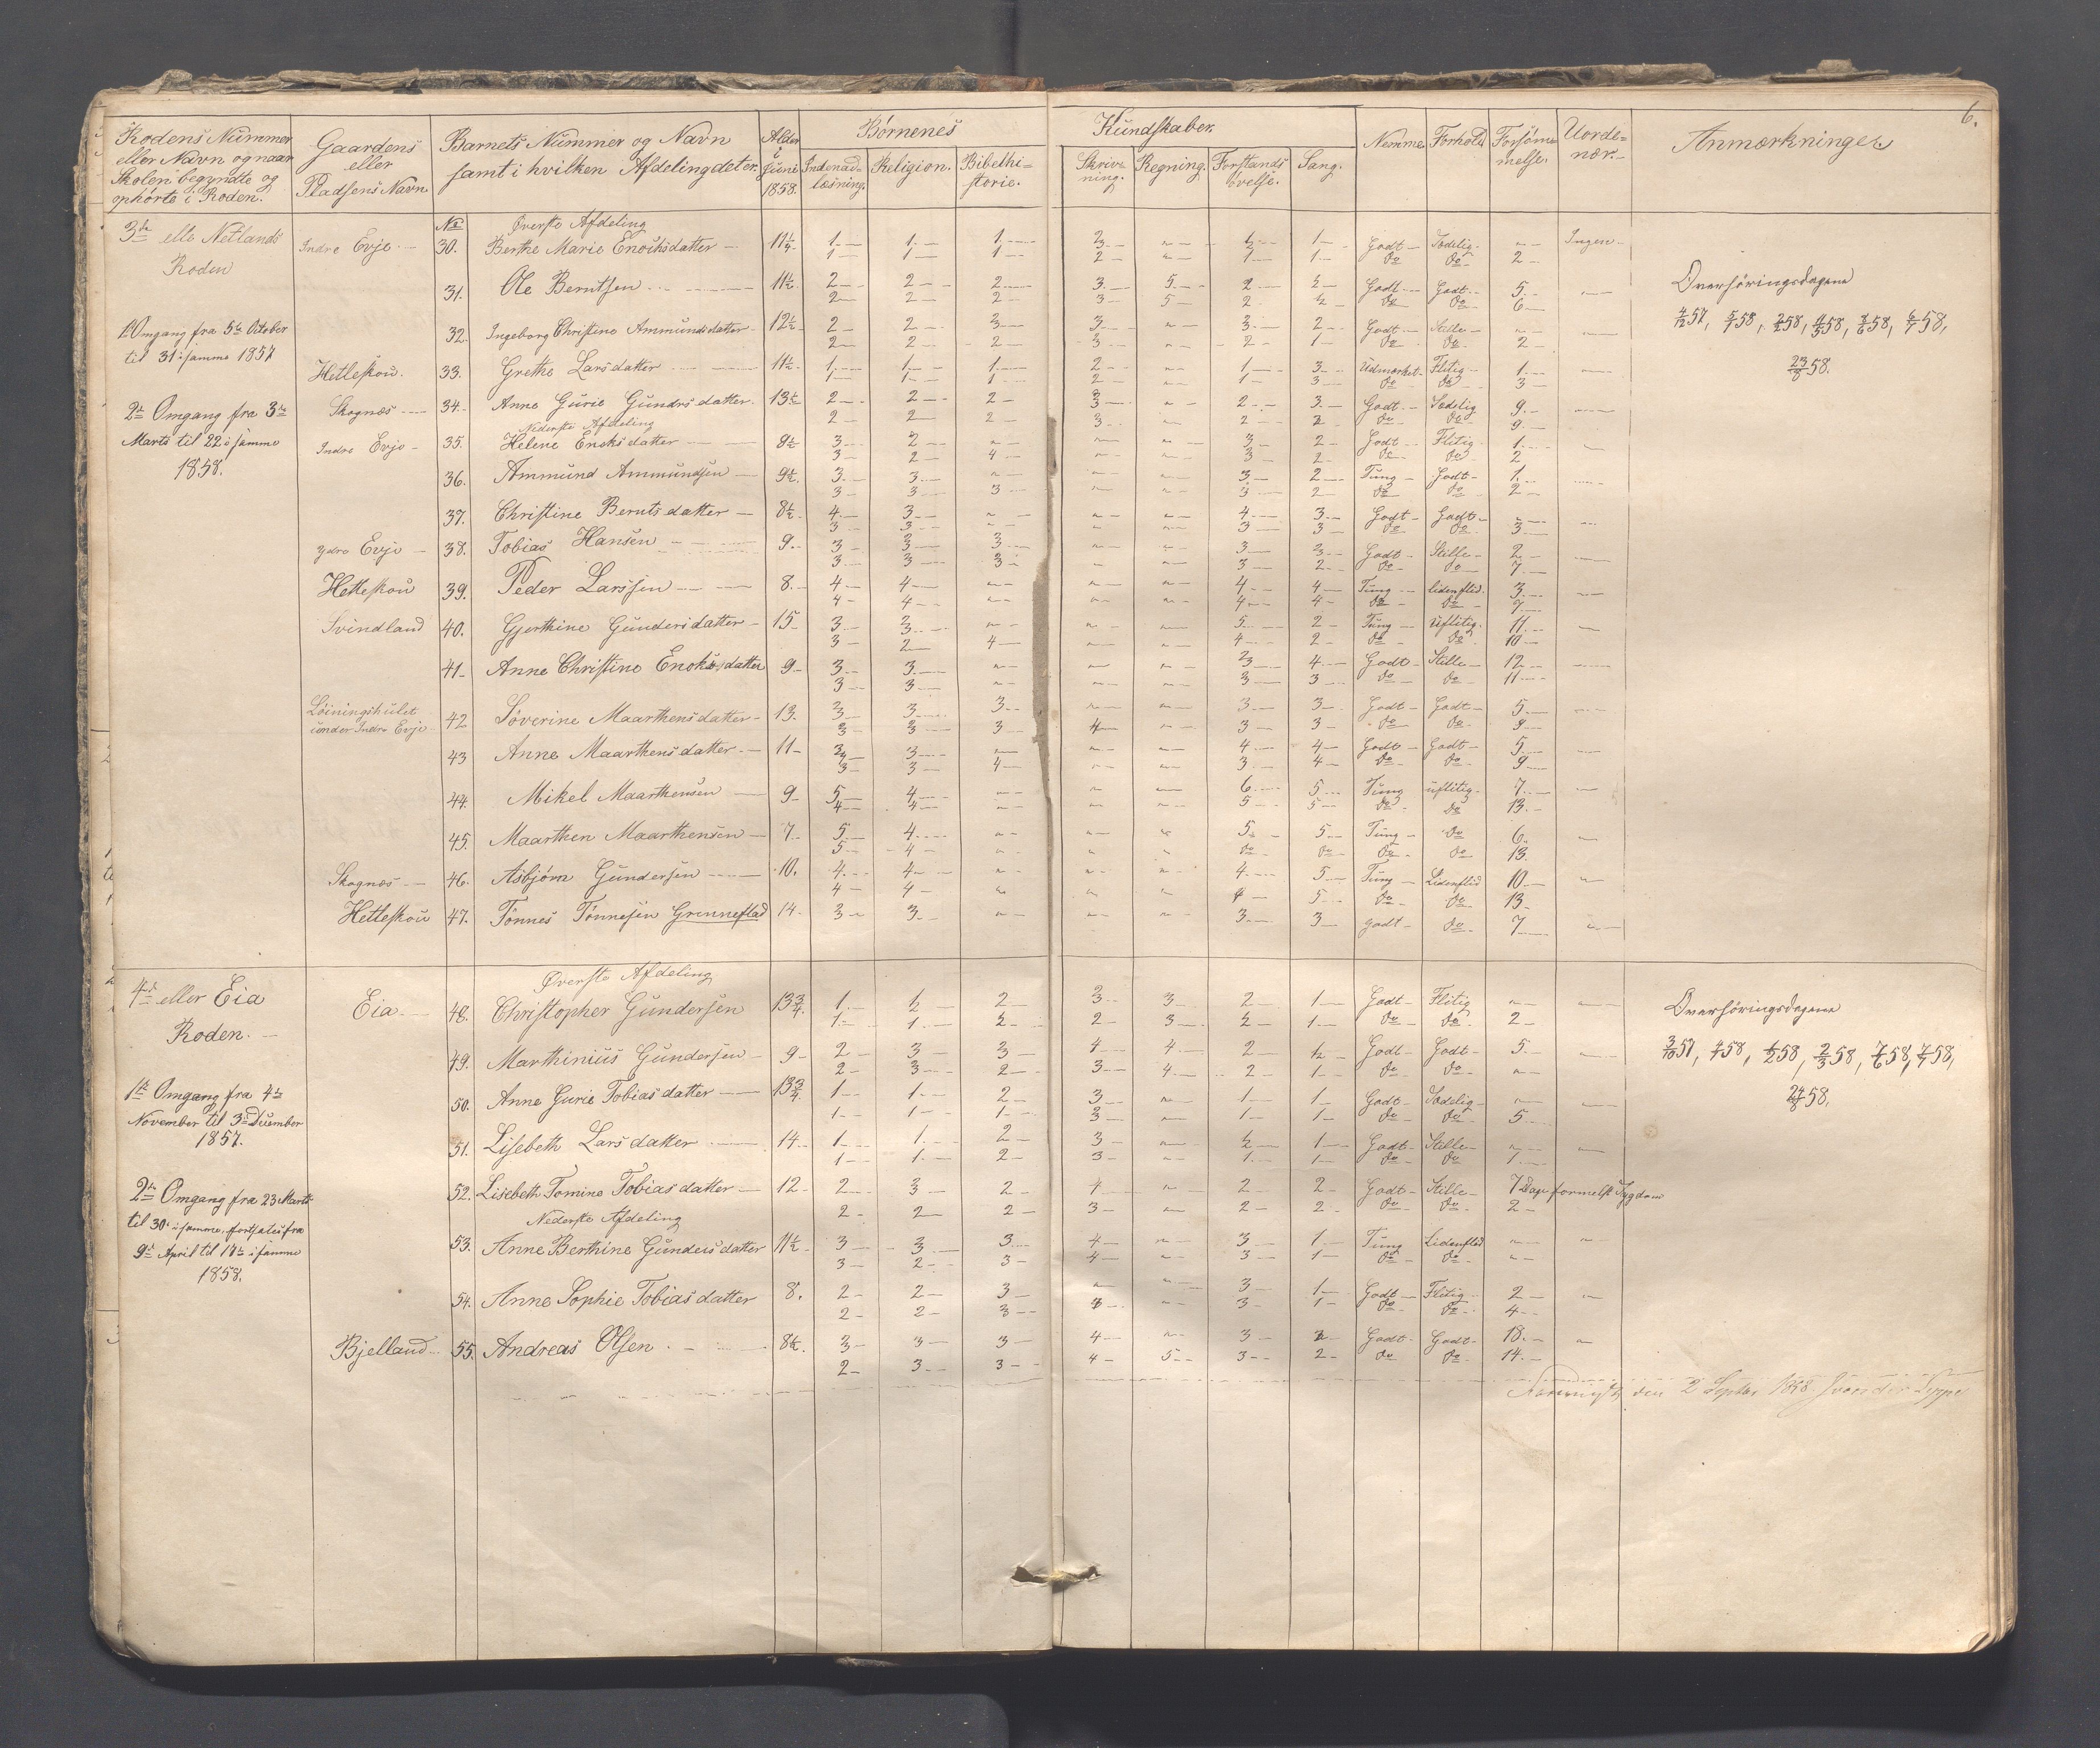 6.
Rodens Nummer
eller Navn og naar
Skolen begyndte og
ophørte i Roden.
Gaardens
eller
Pladsens Navn
Barnets Nummer og Navn
samt i hvilken Afdeling det er.
Alder
i
Juni
1858.
Børnenes Kundskaber.
Indenad-
læsning.
Religion.
Bibelhi=
storie.
Skriv-
ning.
Regning.
Forstands
øvelse.
Sang.
Nemme
Forhold
Forsøm-
melse.
Uorde=
ner.
Anmærkninger
3die elle Netlands
Roden
1. Omgang fra 5te October
til 31 i samme 1857
2de Omgang fra 3die
Marts til 22 i samme
1858.
No Øverste Afdeling
Indre Evje 30. Berthe Marie Enochsdatter 11½ 1 1 1 Godt Sædelig Ingen
1 1 1 2 1 1 do do 2
31. Ole Berntsen 11½ 2 2 2 3 5 2 Godt Godt 5
2 2 2 3 5 2 do do 6
32. Ingeborg Christine Ammundsdatter 12½ 2 2 3 3 3 2 Godt Stille
2 2 2 3 2 1 do do 2
Hetleskou. 33. Grethe Larsdatter 11½ 1 1 1 2 1 3 Udmærket Flitig 1
1 1 1 2 1 3 do do 3
Skognæs 34. Anne Gurie Gundersdatter 13½ 2 2 2 3 2 3 Godt Sædelig 9
2 2 2 3 2 2 do do 9
Nederste Afdeling
Indre Evje 35. Helene Enoksdatter 9½ 3 2 3 2 Godt Flitig 1
3 2 4 3 2 do do 2
36. Ammund Ammundsen 9½ 3 3 3 2 Tung Godt 1
3 3 3 3 2 do do 2
37. Christine Berntsdatter 8½ 4 3 4 3 Godt Godt
3 3 3 3 do do 3
Ydre Evje 38. Tobias Hansen 9 3 3 3 3 3 Godt Stille 2
3 3 3 3 2 do do 7
Hetleskou 39. Peder Larssen 8 4 4 4 4 Tung Liden flid 3
4 4 4 4 do do 7
Svindland 40. Gjerthine Gundersdatter 15 3 3 5 2 Tung uflitig 11
3 2 4 4 2 do do 10
41. Anne Christine Enoksdatter 9 3 3 3 4 Godt Stille 12
3 3 3 3 do do 11
Løiningshulet
under Indre Evje 42 Söverine Maarthensdatter 13. 3 3 3 3 3 Godt Godt 5
3 3 3 4 3 3 do do 9
43 Anne Maarthensdatter 11 3 3 4 4 Godt Godt 5
3 3 4 3 4 do do 9
44. Mikel Maarthensen 9 5 4 6 5 Tung uflitig 7
4 4 5 5 do do 13
45. Maarthen Maarthensen 7 5 4 5 5 Tung do 6
5 4 do do do do 13
Skognæs 46. Asbjørn Gundersen 10. 4 4 4 5 Tung Liden flid 10
4 4 4 5 do do 13
Hetleskou 47. Tønnes Tønnesen Grenneflad 14 3 3 3 3 godt do 7
Overhöringsdagene
4/12 57, 5/1 58, 58, 58, 58, 58,
23/8 58.
4de eller Eia
Roden.
1ste Omgang fra 4de
November til 3die December
1857.
2de Omgang fra 23 Marts
til 30te i samme. fortsates fra
9de April til 17de i samme
1858.
Øverste Afdeling
Eia 48. Christopher Gundersen 13¾ 1 ½ 2 3 2 1 Godt Flitig
1 1 2 2 3 ½ 1 do do 2
49. Marthinius Gundersen 9 2 3 3 4 4 2 ½ Godt Godt 5
2 3 2 3 4 2 1 do do
50. Anne Gurie Tobiasdatter 13¾ 1 1 2 3 1 1 Godt Sædelig
1 1 1 1 1 do do 5
51. Lisebeth Larsdatter 14 1 1 2 3 ½ 1 Godt Stille
1 1 2 3 1 1 do do 1
52. Lisebeth Tomine Tobiasdatter 12 2 3 2 4 2 2 Godt Stille 7 Dage formedelst Sygdom
2 2 2 3 2 2 do do 2
Nederste Afdeling
53. Anne Berthine Gundersdatter 11½ 3 3 3 4 3 1 Tung Liden flid
3 2 3 4 3 1 do do
54. Anne Sophie Tobiasdatter 8. 2 2 3 3 1 Godt Flitig 2
2 2 3 3 1 do do 4
Bjelland 55. Andreas Olsen 8½. 3 3 3 4 3 2 Godt Godt 18
2 3 3 4 5 3 2 do do 14
Overhöringsdagene
57, 58, 58, 2/3 58, 7/6 58, 58,
58.
den 2 Septbr 1858